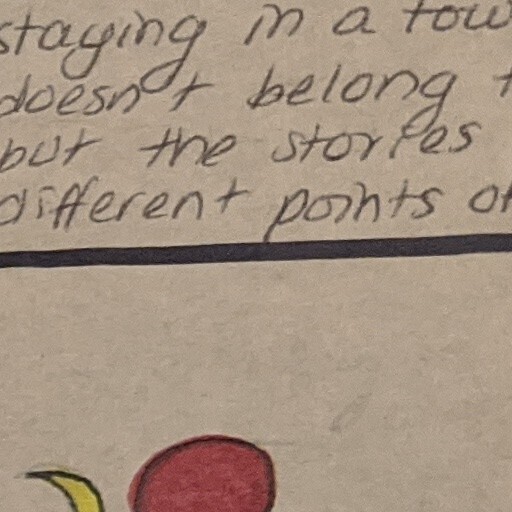 staying in a tow
doesn't belong t
but the stories
different points of